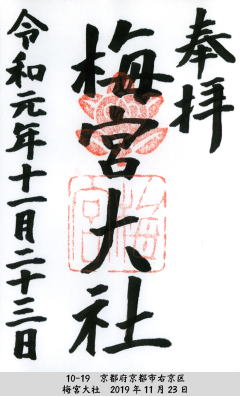 奉拝
梅宮大社
令和元年十一月二十三日
10-19 京都府京都市右京区
梅宮大社 2019年11月23日